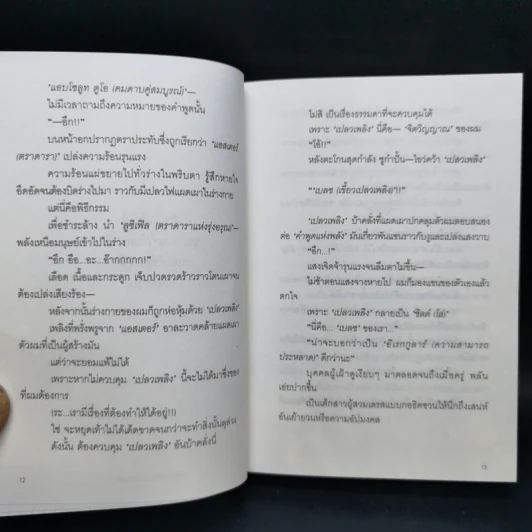 'แอบโซลูท ดูโอ (คมดาบคู่สมบูรณ์)'—
ไม่มีเวลาถามถึงความหมายของคำพูดนั้น
"—อึก!!"
บนหน้าอกปรากฏตราประทับซึ่งถูกเรียกว่า 'แอสเตอร์
(ตราดารา)' เปล่งความร้อนรุนแรง
ความร้อนแผ่ขยายไปทั่วร่างในพริบตา รู้สึกหายใจ
อึดอัดจนต้องบิดร่างไปมา ราวกับมีเปลวไฟแผดเผาในร่างกาย
แต่นี่คือพิธีกรรม
เพื่อชำระล้าง นำ 'ลูซิเฟิล (ตราดาราแห่งรุ่งอรุณ)'—
พลังเหนือมนุษย์เข้าไปในร่าง
"อึก อือ...อะ...อ๊ากกกกก!"
เลือด เนื้อและกระดูก เจ็บปวดรวดร้าวราวโดนเผาจน
ต้องเปล่งเสียงร้อง—
หลังจากนั้นร่างกายของผมก็ถูกห่อหุ้มด้วย 'เปลวเพลิง'
เพลิงที่พรั่งพรูจาก 'แอสเตอร์' อาละวาดคล้ายแผดเผา
ตัวผมที่เป็นผู้สร้างมัน
แต่ว่าจะยอมแพ้ไม่ได้
เพราะหากไม่ควบคุม 'เปลวเพลิง' นี้จะไม่ได้มาซึ่งของ
ที่ผมต้องการ
(ระ...เรามีเรื่องที่ต้องทำให้ได้อยู่!!)
ใช่ จะหยุดเท้าไม่ได้เด็ดขาดจนกว่าจะทำสิ่งนั้นลุล่วง
ดังนั้น ต้องควบคุม 'เปลวเพลิง' อันบ้าคลั่งนี่
12
ไม่สิ เป็นเรื่องธรรมดาที่จะควบคุมได้
เพราะ 'เปลวเพลิง' นี่คือ— 'จิตวิญญาณ' ของผม
"โอ้!!"
หลังตะโกนสุดกำลัง ชูกำปั้น—ไขว่คว้า 'เปลวเพลิง'
"'เบลซ (เขี้ยวเปลวเพลิง)'!"
'เปลวเพลิง' บ้าคลั่งที่แผดเผาปกคลุมตัวผมตอบสนอง
ต่อ 'คำพูดแห่งพลัง' มันเกี่ยวพันแขนราวกับงูและเปล่งแสงวาบ
"อึก...!"
แสงเจิดจ้ารุนแรงจนลืมตาไม่ขึ้น—
ไม่ช้าตอนแสงจางหายไป ผมก็มองแขนของตัวเองแล้ว
ตกใจ
เพราะ 'เปลวเพลิง' กลายเป็น 'ชีลด์ (โล่)'
"นี่คือ... 'เบลซ' ของเรา..."
"น่าจะบอกว่าเป็น 'อิเรกกูลาร์ (ความสามารถ
ประหลาด)' ดีกว่านะ"
บุคคลผู้เฝ้าดูเงียบๆ มาตลอดจนถึงเมื่อครู่ พลัน
เอ่ยปากขึ้น
เป็นเด็กสาวผู้สวมเดรสแบบกอธิคชวนให้นึกถึงเสน่ห์
อันเย้ายวนหรือความอัปมงคล
13